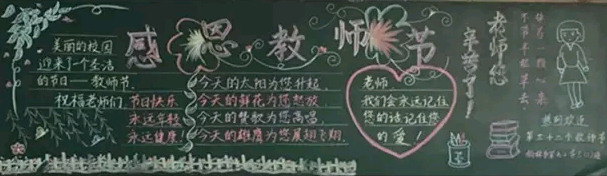 感恩教师节
美丽的校园
迎来了一个圣洁
的节日——教师节.
祝福老师们.节日快乐
永远年轻
永远健康!
今天的太阳为您升起.
今天的鲜花为您怒放.
今天的赞歌为您高唱.
今天的雄鹰为您展翅飞翔.
老师.
我们会永远记住
您的话记住您
的爱!
老师您
辛苦了!
捧着一颗心来
不带半根草去
热烈欢迎
第三十二个教师节